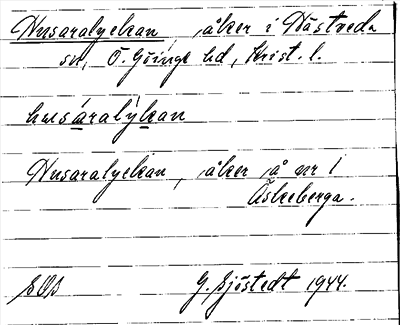 Husaralyckan, åker i Hästveda
sn, Ö. Göinge hd, Krist. l.
husáralỳkan
Husaralyckan, åker på nr 1
Äskeberga.
G. Sjöstedt 1944.